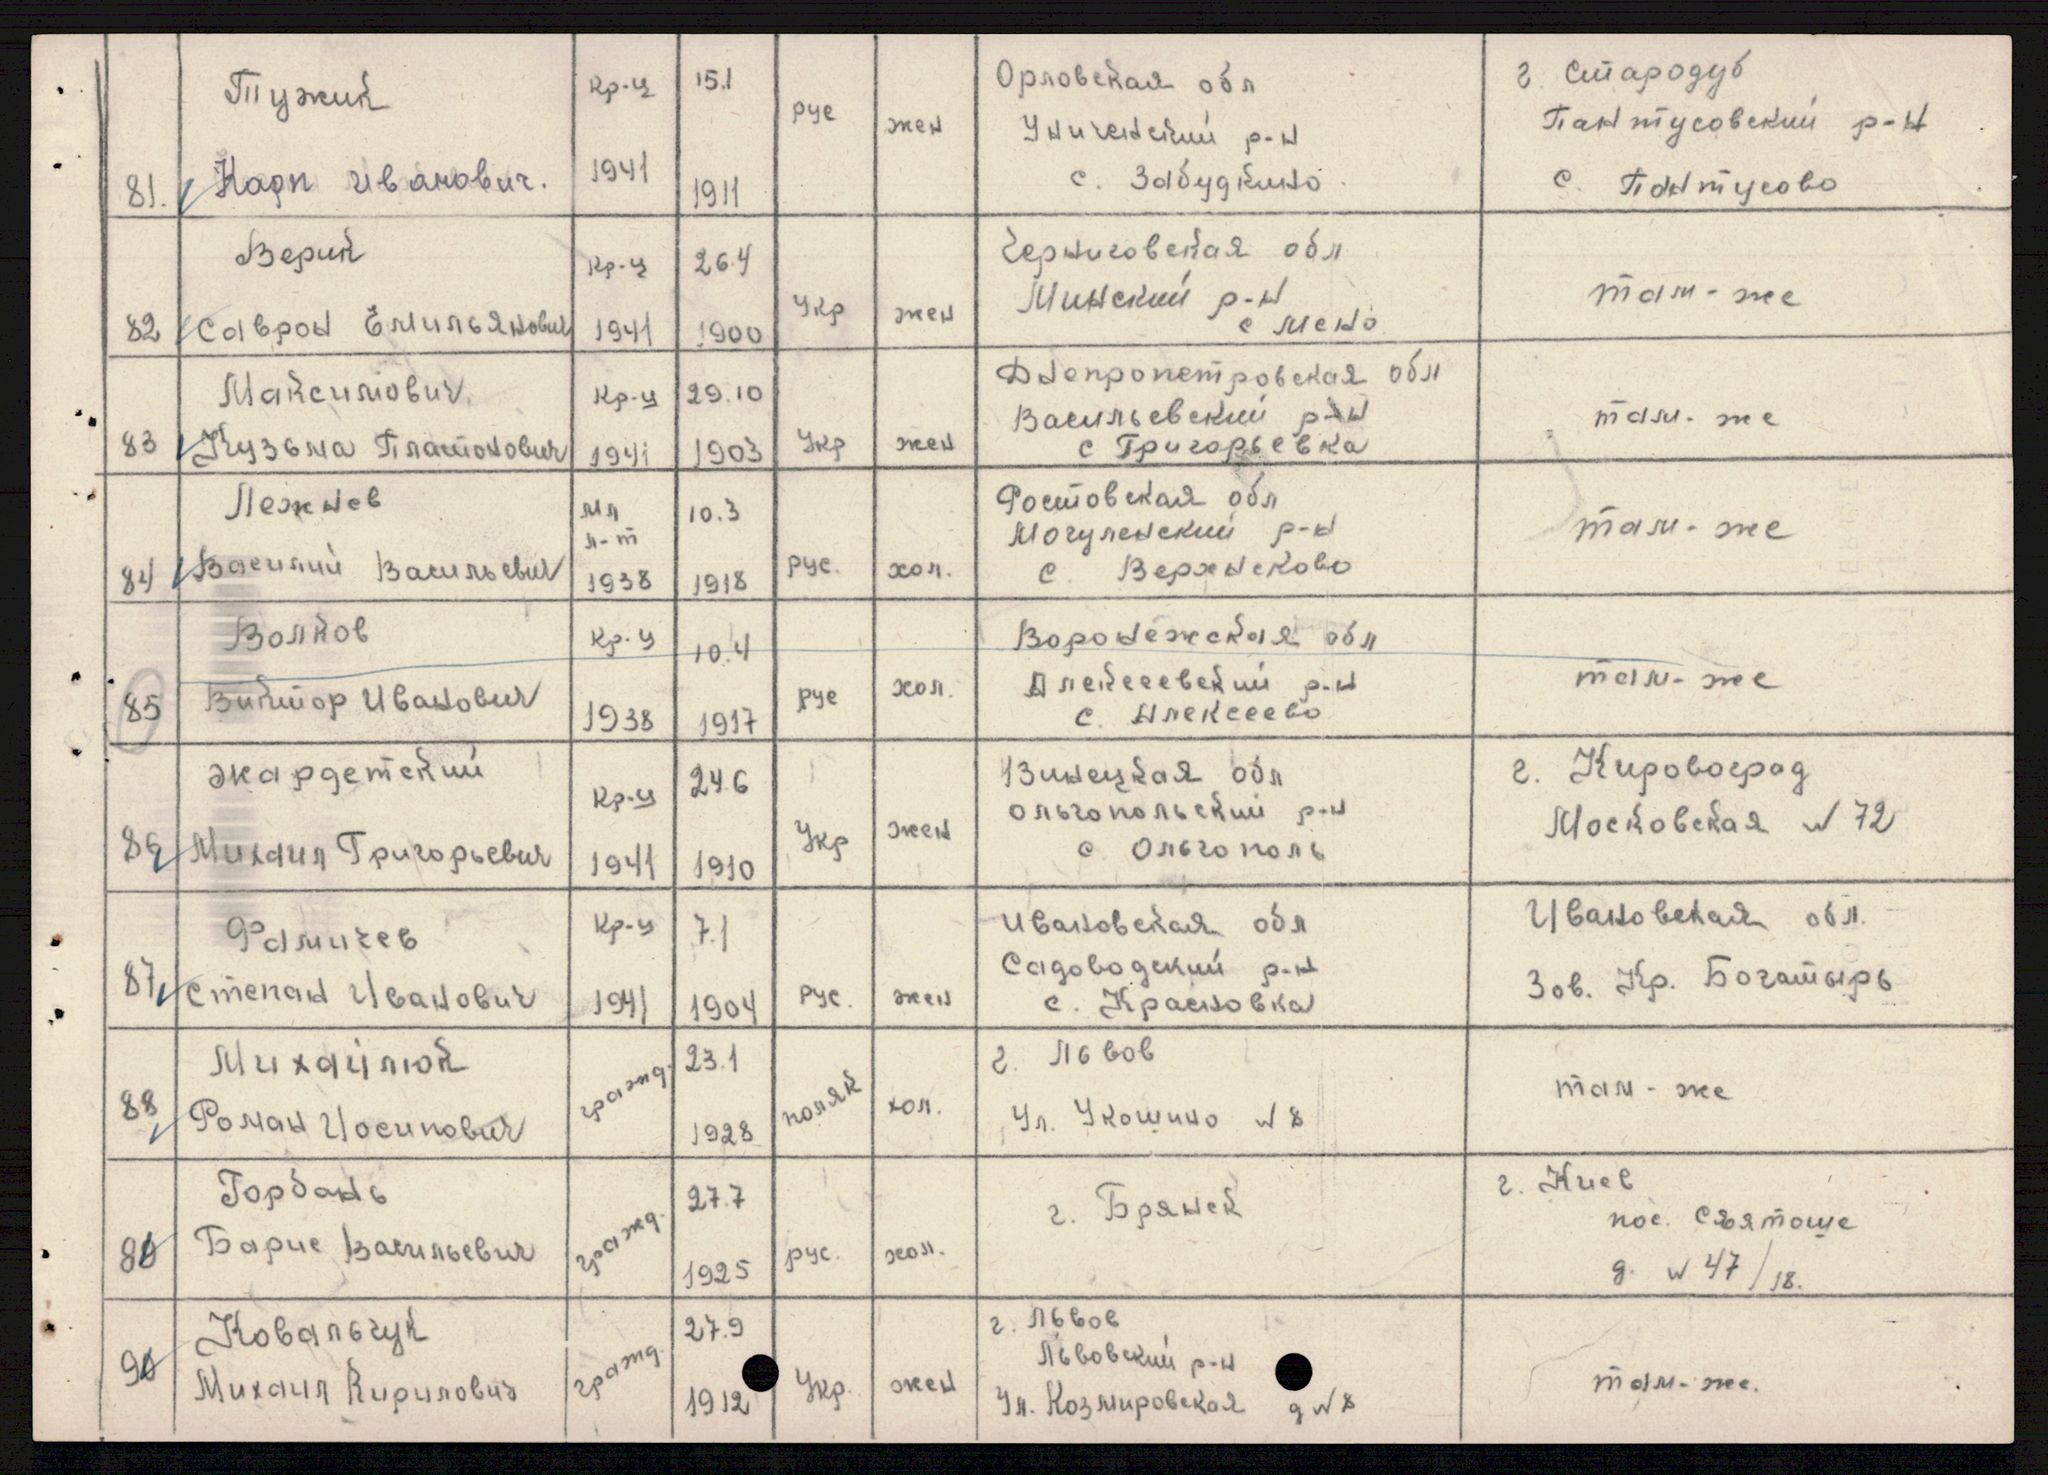 81. Тужик Карп Иванович. Кр-ц 1941 15.1 1911 рус жен Орловская обл Униченский р-н с. Забудкино г. Стародуб Пантусовский р-н с. Пантусово
82 Верик Саврон Емильянович Кр-ц 1941 26.4 1900 Укр жен Черниговская обл Минский р-н с Мено там-же
83 Максимович Кузьма Платонович Кр-ц 1941 29.10 1903 Укр жен Днепропетровская обл Васильевский р-н с Григорьевка там-же
84 Лежнев Василий Васильевич мл л-т 1938 10.3 1918 рус. хол. Ростовская обл Могуленский р-н с. Верхнеково там-же
85 Волков Виктор Иванович Кр-ц 1938 10.4 1917 рус хол. Воронежская обл Алексеевский р-н с. Алексеево там-же
86 Экардетский Михаил Григорьевич Кр-ц 1941 24.6 1910 Укр жен Винецкая обл Ольгопольский р-н с Ольгополь г. Кировоград Московская N 72
87 Фамичев Степан Иванович Кр-ц 1941 7.1 1904 рус. жен Ивановская обл Садоводский р-н с. Красновка Ивановская обл. Зов. Кр. Богатырь
88 Михайлюк Роман Иосипович гражд. 23.1 1928 поляк хол. г. Львов Ул. Укошино N 8 там-же
89 Горбань Барис Васильевич гражд. 27.7 1925 рус. хол. г. Брянск г. Киев пос. Святоше д. N 47/18.
90 Ковальчук Михаил Кирилович гражд. 27.9 1912 Укр. жен г. Львов Львовский р-н Ул. Козмировская д N 8 там-же.